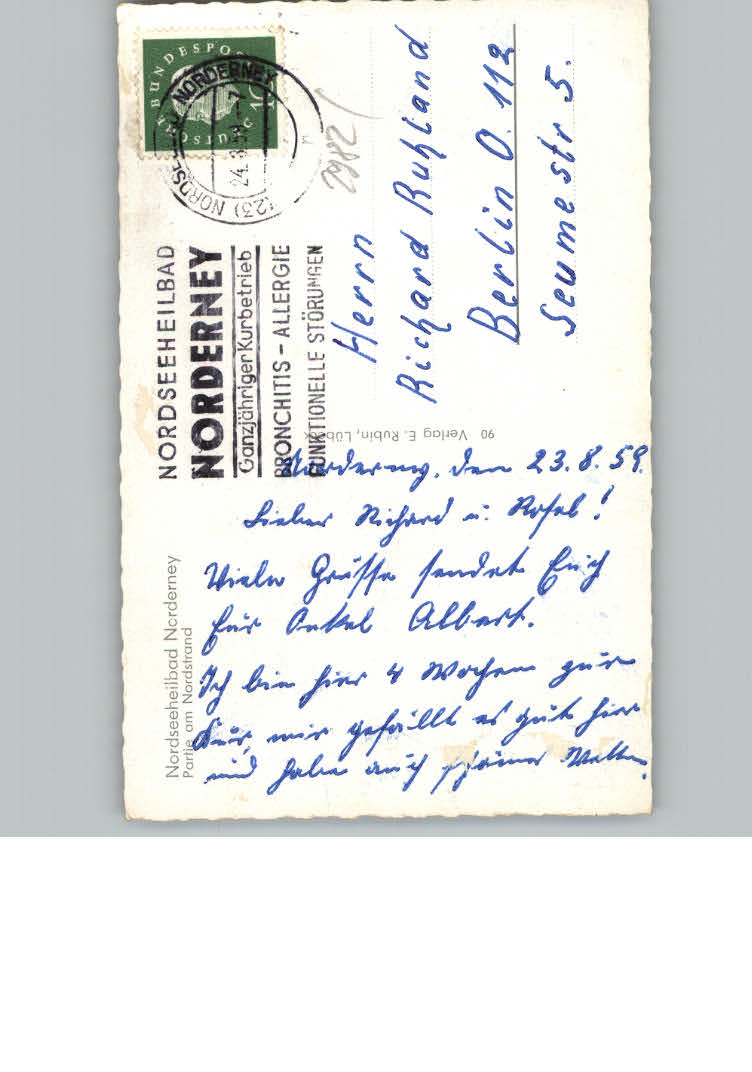 DEUTSCHE BUNDESPOST
10
(23) NORDSEEBAD NORDERNEY
24.8.59 - 7
NORDSEEHEILBAD
NORDERNEY
Ganzjähriger Kurbetrieb
BRONCHITIS - ALLERGIE
FUNKTIONELLE STÖRUNGEN
2982
Herrn
Richard Ruhland
Berlin O. 112
Seumestr 5.
90 Verlag E. Rubin, Lübeck
Nordseeheilbad Norderney
Partie am Nordstrand
Norderney, den 23.8.59.
Lieber Richard u. Rosel!
Viele Grüsse sendet Euch
Euer Onkel Albert.
Ich bin hier 4 Wochen zur
Kur, mir gefällt es gut hier
und habe auch schönes Wetter.